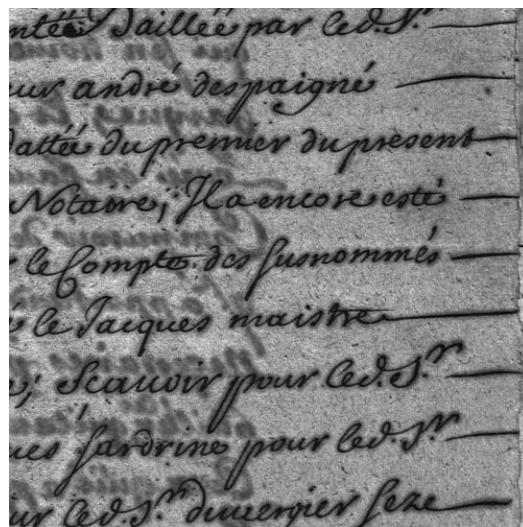 ntée Baillée par led. S.r
eur andré despaigné
dattée du premier du present
Notaire, Il a encore esté
le Compte des susnommés
le Jacques maistre
scauoir pour led. S.r
ues fardrine pour led. S.r
ur led. S.r duuergier seze